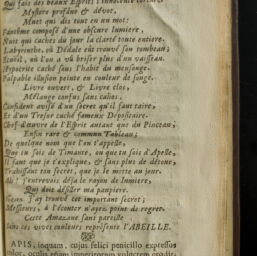 Qui fais des beaux Esprits l'innocente torture
Mystere profane & devot,
Muet qui dis tout en un mot:
Fantôme composé d'une obscure lumiere,
Nuit qui caches du jour la clarté toute entiere.
Labyrinthe, où Dédale eût trouvé son tombeau;
Ecueil, où l'on a vû briser plus d'un vaisseau.
Hypocrite caché sous l'habit du mensonge.
Palpable illusion peinte en couleur de songe.
Livre ouvert, & Livre clos,
Mélange confus sans cahos.
Confident avisé d'un secret qu'il faut taire,
Et d'un Tresor caché fameux Dépositaire.
Chef-d'œuvre de l'Esprit autant que du Pinceau;
Enfin rare & commun Tableau;
De quelque nom que l'on t'appelle,
Que tu sois de Timante, ou que tu sois d'Apelle,
Il faut que je t'explique, & sans plus de détour,
Trahissant ton secret, que je le mette au jour.
Ah! j'entrevois déja le rayon de lumiere,
Qui doit désiller ma paupiere.
J'ay trouvé cet important secret;
Messieurs, à l'écouter n'ayez point de regret.
Cette Amazone sans pareille
Sous ces vives couleurs represente l'ABEILLE.
APIS, inquam, cujus felici penicillo expressos